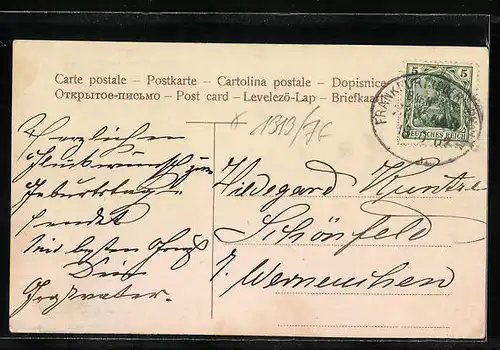 Carte postale – Postkarte – Cartolina postale – Dopisnice
Открытое-письмо – Post card – Levelező-Lap – Briefkaart
5 5
DEUTSCHES REICH
FRANKFURT
1319/76
Herzlichen
Glückwunsch zum
Geburtstage
sendet
mit bestem Gruß
Dein
Großvater.
Hildegard Kuntze
Schönfeld
b. Werneuchen